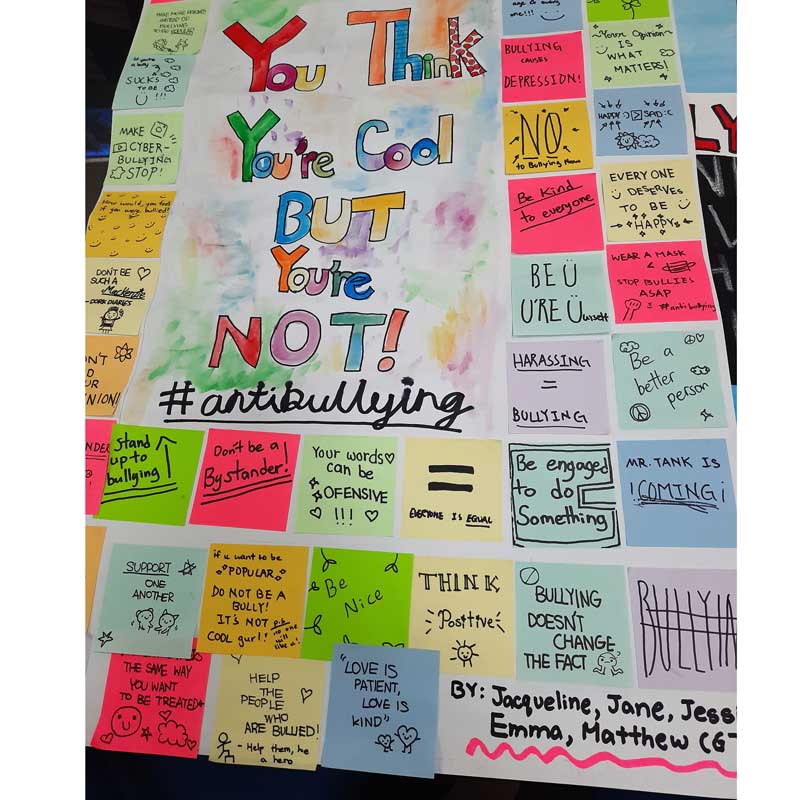 You Think
You're Cool
BUT
You're
NOT!
#antibullying
MAKE MORE FRIENDS
INSTEAD OF
BULLYING
TO BE POPULAR
SUCKS
TO BE
U !!!
MAKE
CYBER-
BULLYING
STOP!
How would you feel
if you were bullied?
DON'T BE
SUCH A
Mackenzie
-DORK DIARIES
one!!!
BULLYING
CAUSES
DEPRESSION!
NO
to Bullying
Be Kind
to everyone
BE Ü
U'RE Ü
HARASSING
=
BULLYING
Your Opinion
IS
WHAT
MATTERS!
HAPPY :) SAD :C
EVERYONE
DESERVES
TO BE
HAPPY
WEAR A MASK
STOP BULLIES
ASAP
#antibullying
Be a
better
person
LY
Stand
up to
bullying
Don't be a
Bystander!
Your words
can be
OFFENSIVE
!!!
=
EVERYONE IS EQUAL
Be engaged
to do
Something
MR. TANK IS
¡COMING¡
SUPPORT
ONE
ANOTHER
if u want to be
POPULAR
DO NOT BE A
BULLY!
IT'S NOT
COOL gurl!
p.s.
no one
will
like u!
Be
Nice
THINK
Positive
BULLYING
DOESN'T
CHANGE
THE FACT
BULLYIN
THE SAME WAY
YOU WANT
TO BE TREATED
HELP
THE
PEOPLE
WHO
ARE BULLIED!
- Help them, be
a hero
"LOVE IS
PATIENT,
LOVE IS
KIND"
BY: Jacqueline, Jane, Jess
Emma, Matthew (G